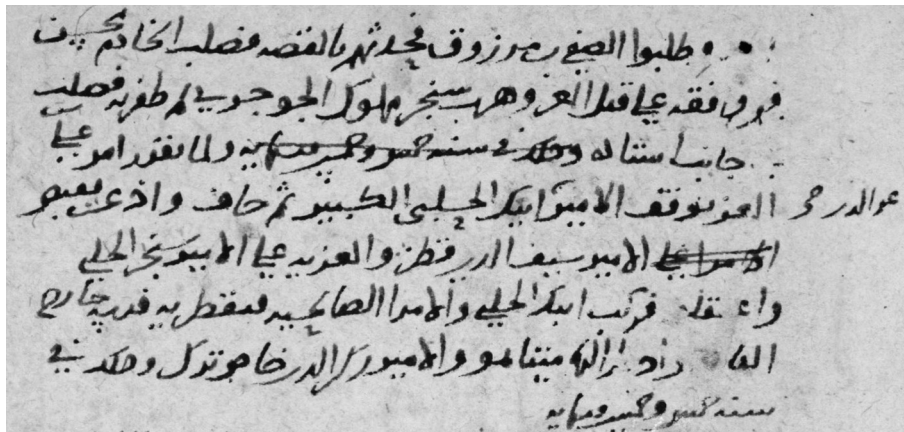 وطلبوا الصفي بن مرزوق فحدثهم بالقصه فصلب الخادم محسن
فوافقه على قتل المعز وهرب سنجر مملوك الجوجري ثم ظفر به فصلب
جانب استاده وذلك في سنه خمس وخمسين وستمايه ولما تقرر امر علي
المعز توقف الامير ايبك الحلبي الكبير ثم خاف واذعن بعض
الامرا على الامير سيف الدين قطز والمعزيه على الامير سنجر الحلبي
واعتقله فركب ايبك الحلبي والامرا الصالحيه فتقطر به فرسه خارج
القاهره وادخل اليها ميتا هو والامير ركن الدين خاص ترك وذلك في
سنه خمس وخمسين وستمايه